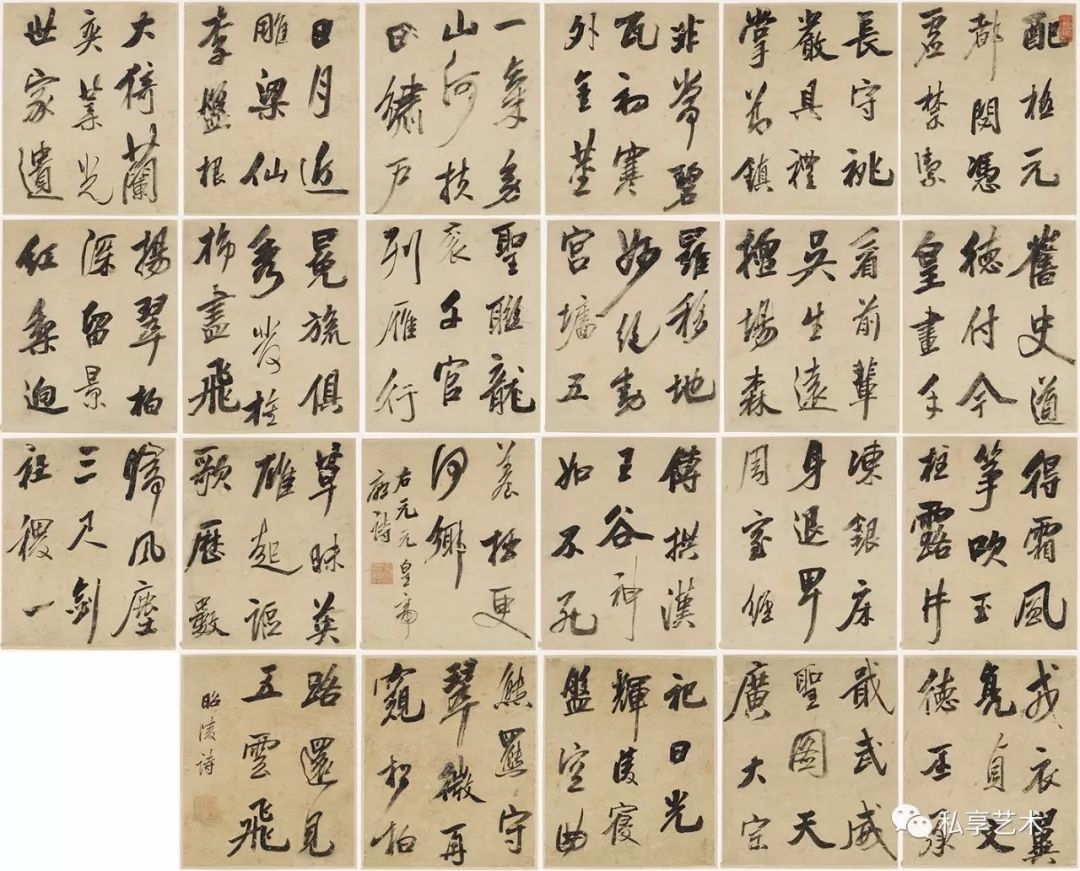 配極元
都閟憑
虛禁籞
長守祧
嚴具禮
掌節鎮
非常碧
瓦初寒
外金莖
一氣旁
山河扶
日繡戶
日月近
雕梁仙
李盤根
大猗蘭
奕葉光
世家遺
舊史道
德付今
皇畫手
看前輩
吳生遠
擅場森
羅移地
妙絕動
宮墻五
聖聯龍
袞千官
列雁行
冕旒俱
秀發旌
旆盡飛
揚翠柏
深留景
紅梨迥
得霜風
箏吹玉
柱露井
凍銀床
身退卑
周室經
傳拱漢
王谷神
如不死
養拙更
何鄉
右元元皇帝
廟詩
草昧英
雄起謳
歌歷數
歸風塵
三尺劍
社稷一
戎衣翼
亮貞文
德丕承
戢武威
聖圖天
廣大宗
祀日光
輝陵寢
盤空曲
熊羆守
翠微再
窺松柏
路還見
五雲飛
昭陵詩
私享艺术